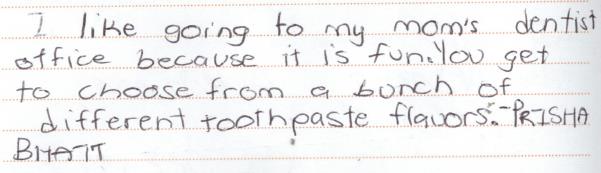 I like going to my mom's dentist
office because it is fun. You get
to choose from a bunch of
different toothpaste flavors." -PRISHA
BHATT